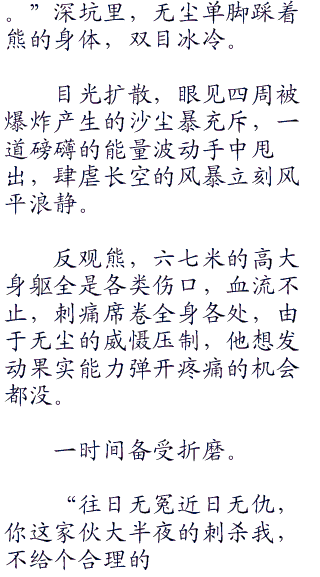 。”深坑里，无尘单脚踩着
熊的身体，双目冰冷。
目光扩散，眼见四周被
爆炸产生的沙尘暴充斥，一
道磅礴的能量波动手中甩
出，肆虐长空的风暴立刻风
平浪静。
反观熊，六七米的高大
身躯全是各类伤口，血流不
止，刺痛席卷全身各处，由
于无尘的威慑压制，他想发
动果实能力弹开疼痛的机会
都没。
一时间备受折磨。
“往日无冤近日无仇，
你这家伙大半夜的刺杀我，
不给个合理的